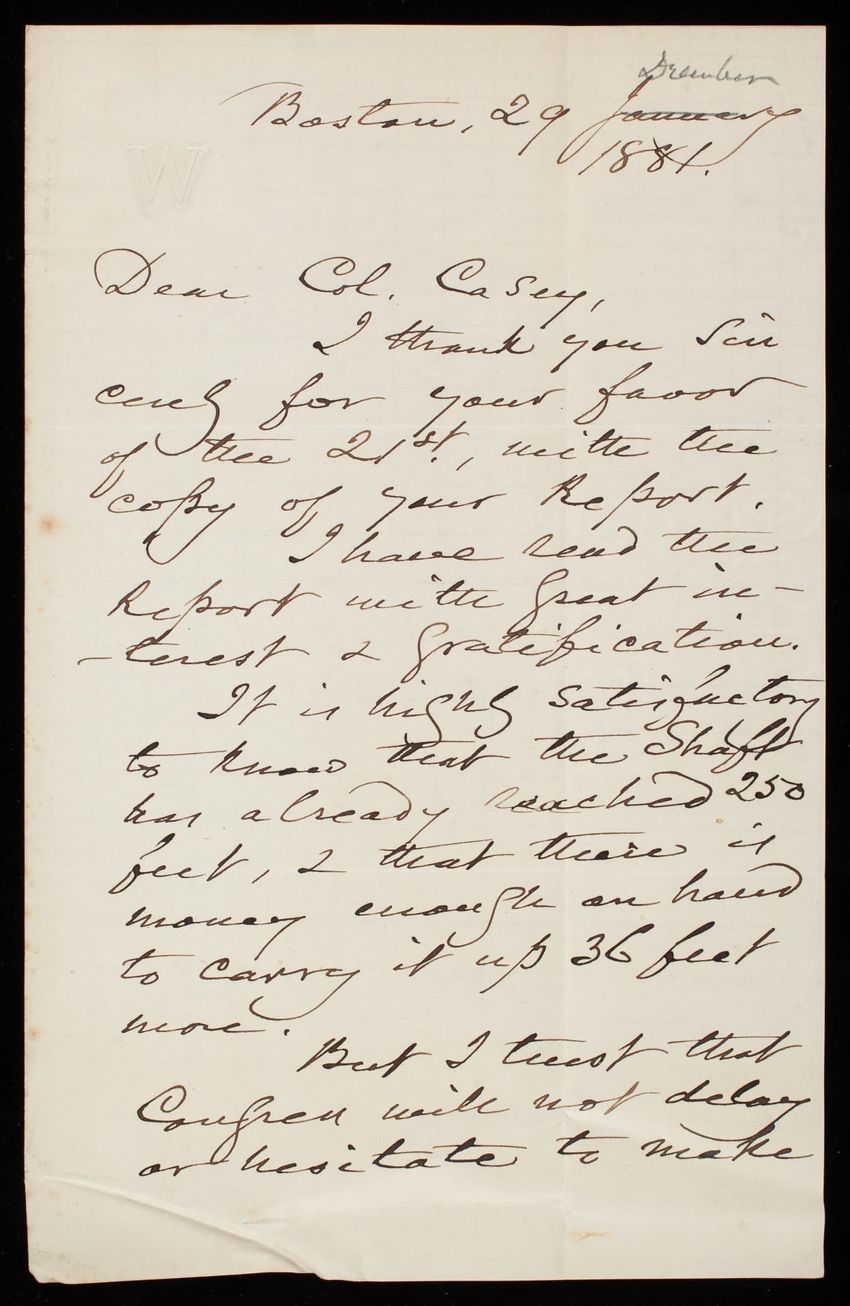 December
Boston, 29 January
1881.
W
Dear Col. Casey,
I thank you sin
cerely for your favor
of the 21st., with the
copy of your Report.
I have read the
Report with great in-
-terest & gratification.
It is highly satisfactory
to know that the Shaft
has already reached 250
feet, & that there is
money enough on hand
to carry it up 36 feet
more.
But I trust that
Congress will not delay
or hesitate to make